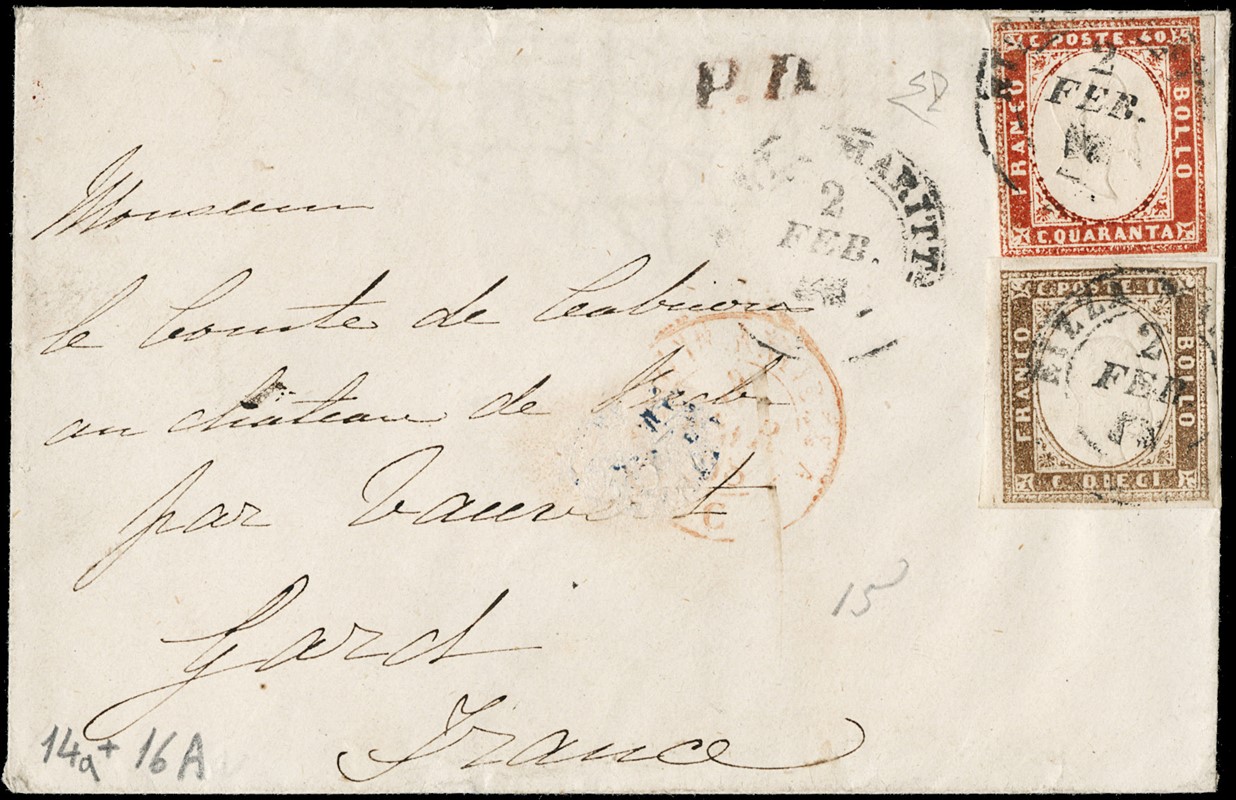 P.D.
C. POSTE. 40
FRANCO
BOLLO
2
FEB.
C. QUARANTA
MARITT.
2
FEB.
Monsieur
le Comte de
au château de
par Vauvert
Gard
France
C. POSTE. 10
FRANCO
BOLLO
NIZZA
2
FEB
C. DIECI
15
14a + 16A